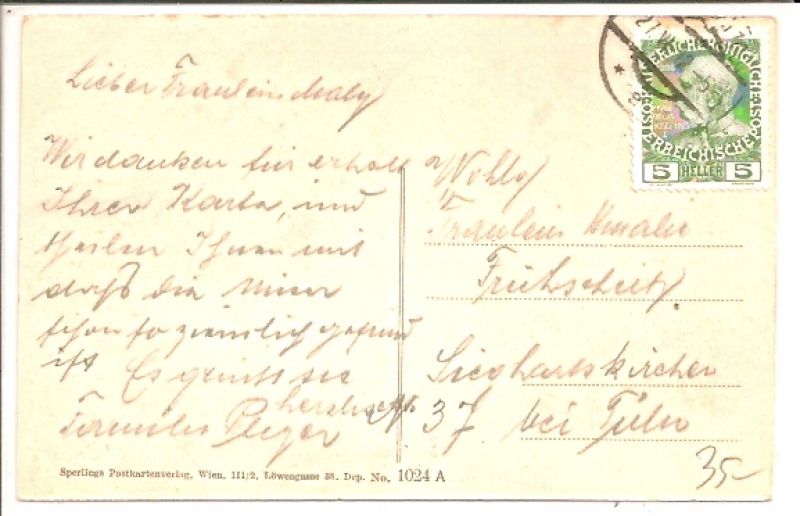 Lieber Fräulein Maly
Wir danken für erhalt
Ihrer Karte, und
theilen Ihnen mit
daß die
schon so ziemlich gesund
ist Es grüßt sie
herzlichst
Familie Pleyer
Wohlg
Fräulein Amalie
Sieghartskirchen
37 bei Tulln
35-
KAISERLICHE KÖNIGLICHE ÖSTERREICHISCHE
5 HELLER 5
Sperlings Postkartenverlag, Wien, III/2, Löwengasse 38. Dep. No. 1024 A